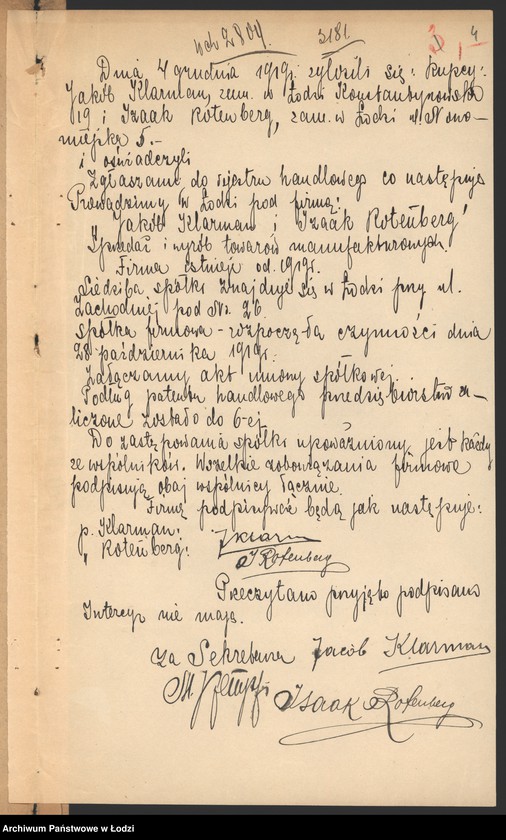 wch 2804 3181. 3,- 4
Dnia 4 grudnia 1919r. zgłosili się: kupcy:
Jakób Klarman, zam. w Łodzi Konstantynowska
19 i Izaak Rotenberg, zam. w Łodzi ul. Nowo-
miejska 5.-
i oświadczyli
Zgłaszamy do rejestru handlowego co następuje
Prowadzimy w Łodzi pod firmą:
"Jakób Klarman i Izaak Rotenberg"
Sprzedaż i wyrób towarów manufakturowych.
Firma istnieje od 1919r.
Siedziba spółki znajduje się w Łodzi przy ul.
Zachodniej pod No. 26.
Spółka firmowa - rozpoczęła czynności dnia
28 października 1919r.
Załączamy akt umowy spółkowej.
Podług patentu handlowego przedsiębiorstwo za-
liczone zostało do 6-ej
Do zastępowania spółki upoważniony jest każdy
ze wspólników. Wszelkie zobowiązania firmowe
podpisują obaj wspólnicy łącznie.
Firmę podpisywać będą jak następuje:
p. Klarman: JKlarm
" Rotenberg: I Rotenberg
Przeczytano przyjęto podpisano
Intercyz nie mają.
Za Sekretarza Jacób Klarman
Isaak Rotenberg
Archiwum Państwowe w Łodzi